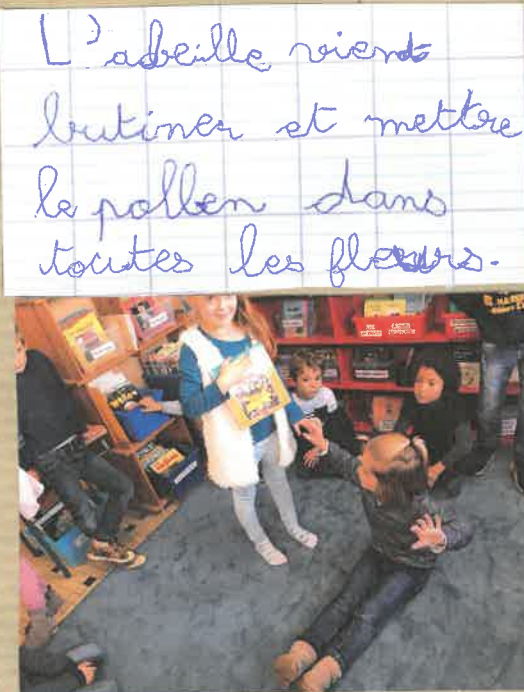 L'abeille vient
butiner et mettre
le pollen dans
toutes les fleurs.